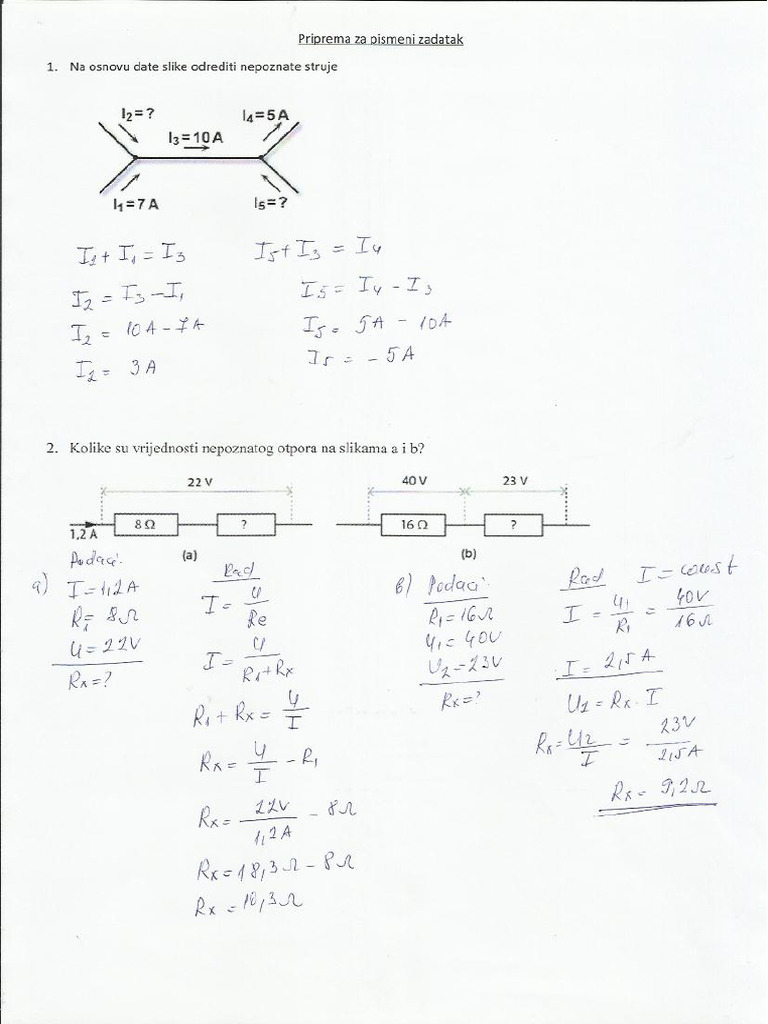 Priprema za pismeni zadatak
1. Na osnovu date slike odrediti nepoznate struje
I2=?
I4=5A
I3=10A
I1=7A
I5=?
I1 + I1 = I3
I2 = I3 - I1
I2 = 10A - 7A
I2 = 3A
I5 + I3 = I4
I5 = I4 - I3
I5 = 5A - 10A
I5 = - 5A
2. Kolike su vrijednosti nepoznatog otpora na slikama a i b?
22 V
1,2 A
8 Ω
?
(a)
40 V
23 V
16 Ω
?
(b)
a)
Podaci:
I = 1,2A
R1 = 8Ω
U = 22V
Rx = ?
Rad
I = U/Re
I = U/R1+Rx
R1 + Rx = U/I
Rx = U/I - R1
Rx = 22V/1,2A - 8Ω
Rx = 18,3Ω - 8Ω
Rx = 10,3Ω
b)
Podaci:
R1 = 16Ω
U1 = 40V
U2 = 23V
Rx = ?
Rad
I = const
I = U1/R1 = 40V/16Ω
I = 2,5A
U2 = Rx · I
Rx = U2/I = 23V/2,5A
Rx = 9,2Ω